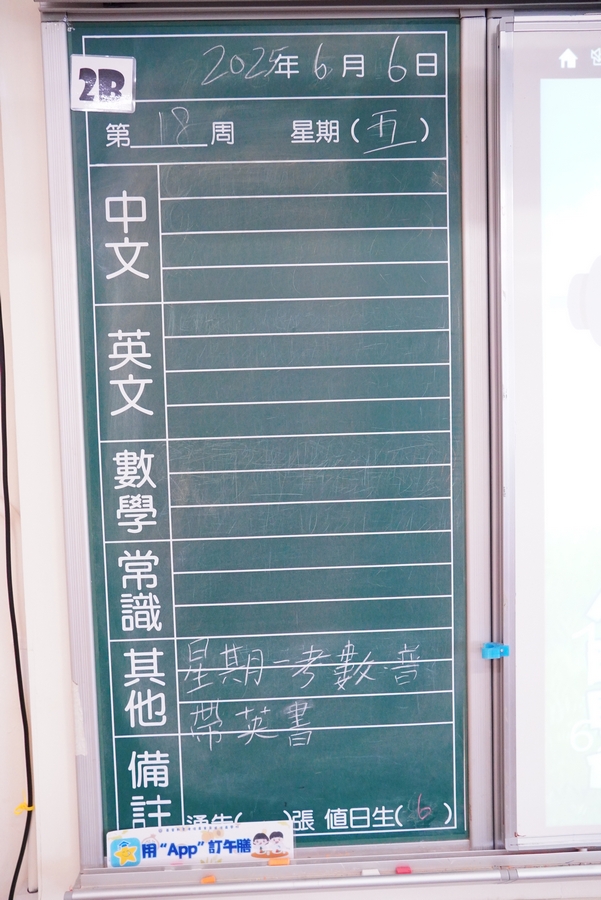 2025年 6月 6日
2B
第 18 周 星期（五）
中文
英文
數學
常識
其他
星期一考數.普
帶英書
備註
通告( )張 值日生(6)
用“App”訂午膳